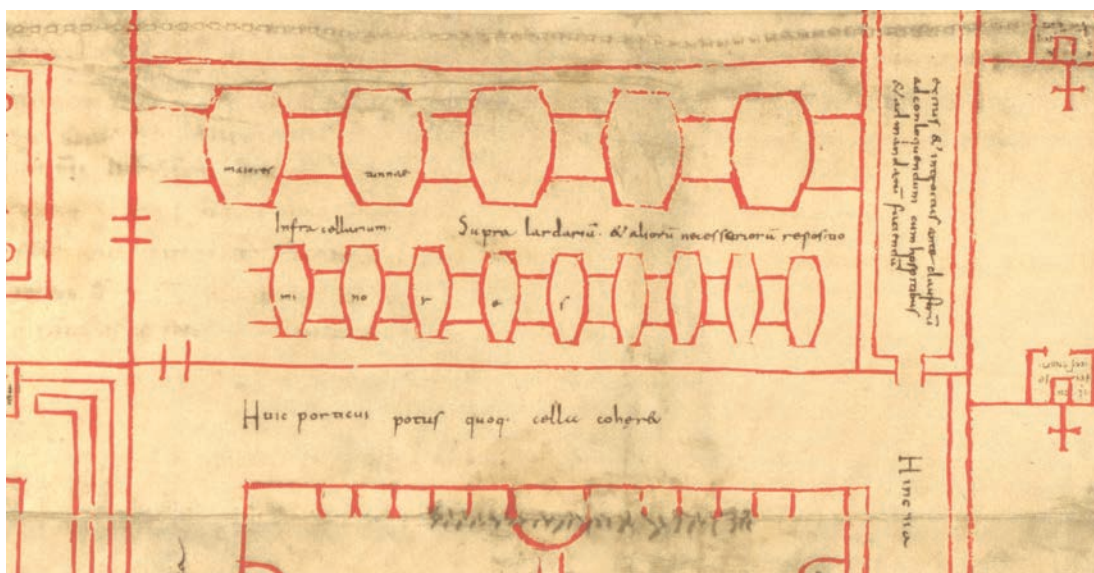 maiores tunnae
Infra cellarium. Supra lardariū. & aliorū necessariorū repositio
mi no r e s
Huic porticui potus quoq. cella coheret
exitus & introitus ante claustrū
ad conloquendum cum hospitibus
& ad mandatū faciendū